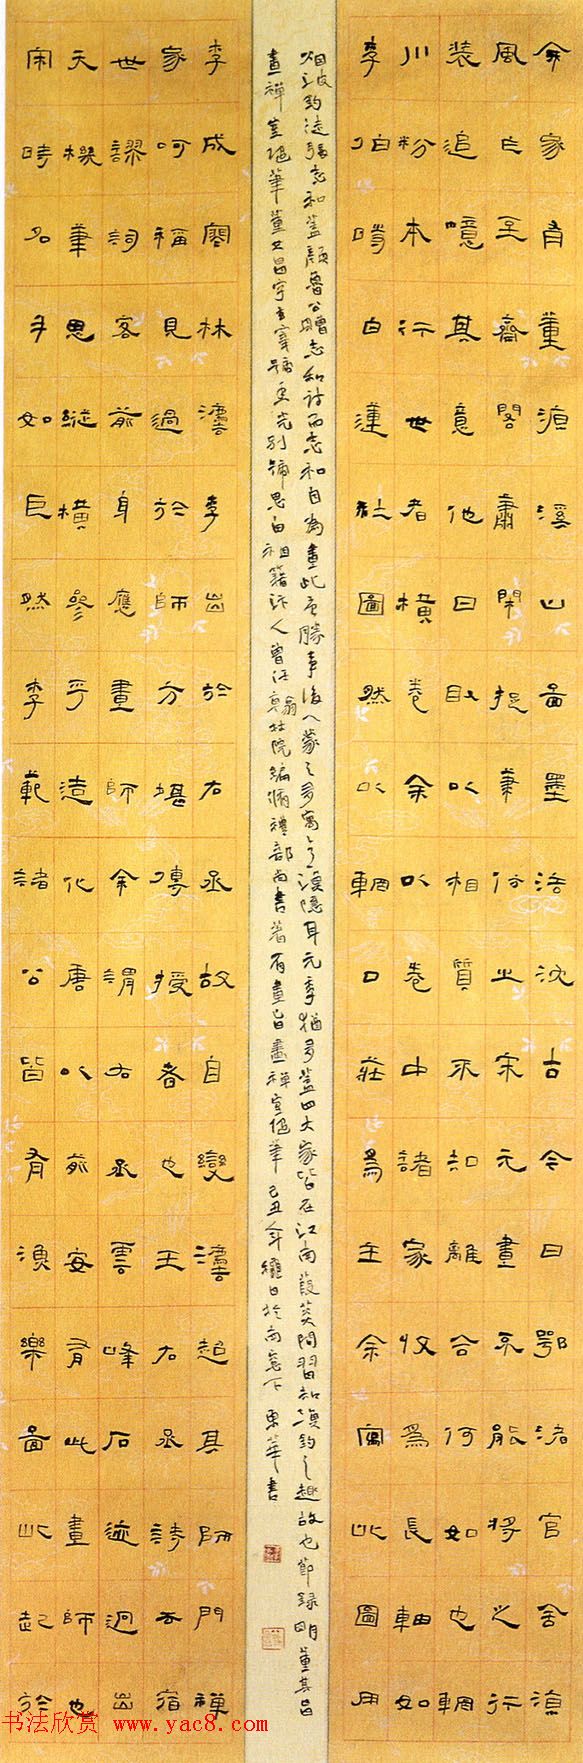 余家有董源溪山圖墨法沈古今日鄂渚官舍涼
風乍至齋閣肅閑捉筆仿之宋元畫不能將之行
裝追憶其意他日取以相質不知離合何如也輞
川粉本行世者橫卷余以卷中諸家收爲長軸如
李伯時白蓮社圖然以輞口莊爲主余寫此圖用
李成林灋李出於右丞故自變灋超其師門禪
家呵稱見過於師方堪傳授者也王右丞詩云宿
世謬詞客前身應畫師余謂右丞雲峰石迹迥出
天機筆思縱橫參乎造化唐以前安有此畫師也
宋時名手如巨然李範諸公皆有漁樂圖此起於
烟波釣徒張志和蓋顏魯公贈志和詩而志和自爲畫此唐勝事後人蒙之多寓意漁隱耳元季猶多蓋四大家皆在江南葭菼間習知漁釣之趣故也節錄明董其昌
畫禪室隨筆董其昌字玄宰號香光別號思白祖籍汴人曾任翰林院編脩禮部尚書著有畫旨畫禪室隨筆己丑日於南窗下東華書
书法欣赏 www.yac8.com